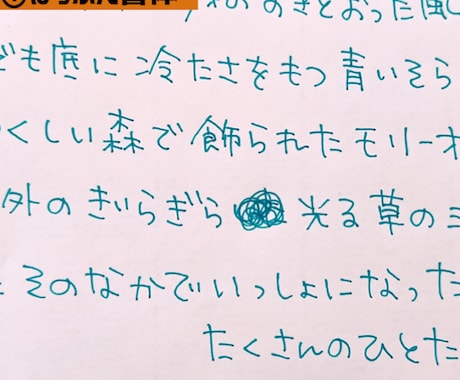 のすきとおった風
でも底に冷たさをもつ青いそら
くしい森で飾られたモリーオ
外のきいらぎら光る草の
そのなかでいっしょになった
たくさんのひとた